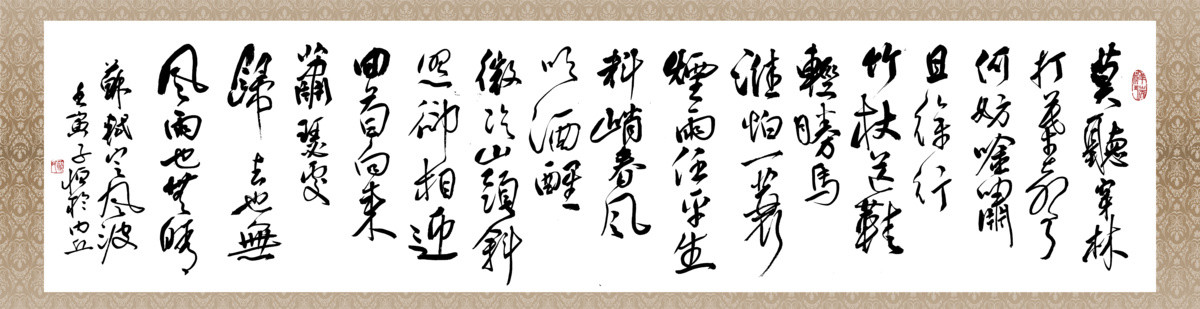 莫聽穿林
打葉聲
何妨吟嘯
且徐行
竹杖芒鞋
輕勝馬
誰怕一蓑
煙雨任平生
料峭春風
吹酒醒
微冷山頭斜
照卻相迎
回首向來
蕭瑟處
歸去也無
風雨也無晴
蘇軾定風波
壬寅子恒於